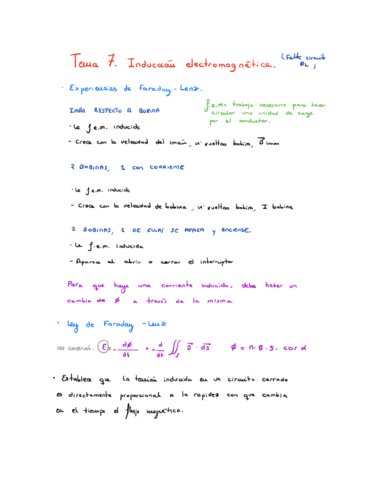 Tema 7. Inducción electromagnética. (Falta circuito
RL)
· Experiencias de Faraday-Lenz.
IMÁN RESPECTO A BOBINA
f.e.m: trabajo necesario para hacer
circular una unidad de carga
por el conductor.
· Ie f.e.m. inducida
- Crece con la velocidad del imán, nº vueltas bobina, B iman
2 BOBINAS, 1 CON CORRIENTE
· Ie f.e.m. inducida
- Crece con la velocidad de bobina, nº vueltas bobina, I bobina
2 BOBINAS, 1 DE ELLAS SE APAGA Y ENCIENDE.
· Ie f.e.m. inducida
- Aparece al abrir o cerrar el interruptor
Para que haya una corriente inducida, debe haber un
cambio de Ø a través de la misma.
· Ley de Faraday-Lenz
ε = - dØ/dt = - d/dt ∬ₛ B · ds Ø = n · B · S · cos α
· Establece que la tensión inducida en un circuito cerrado
es directamente proporcional a la rapidez con que cambia
en el tiempo el flujo magnético.